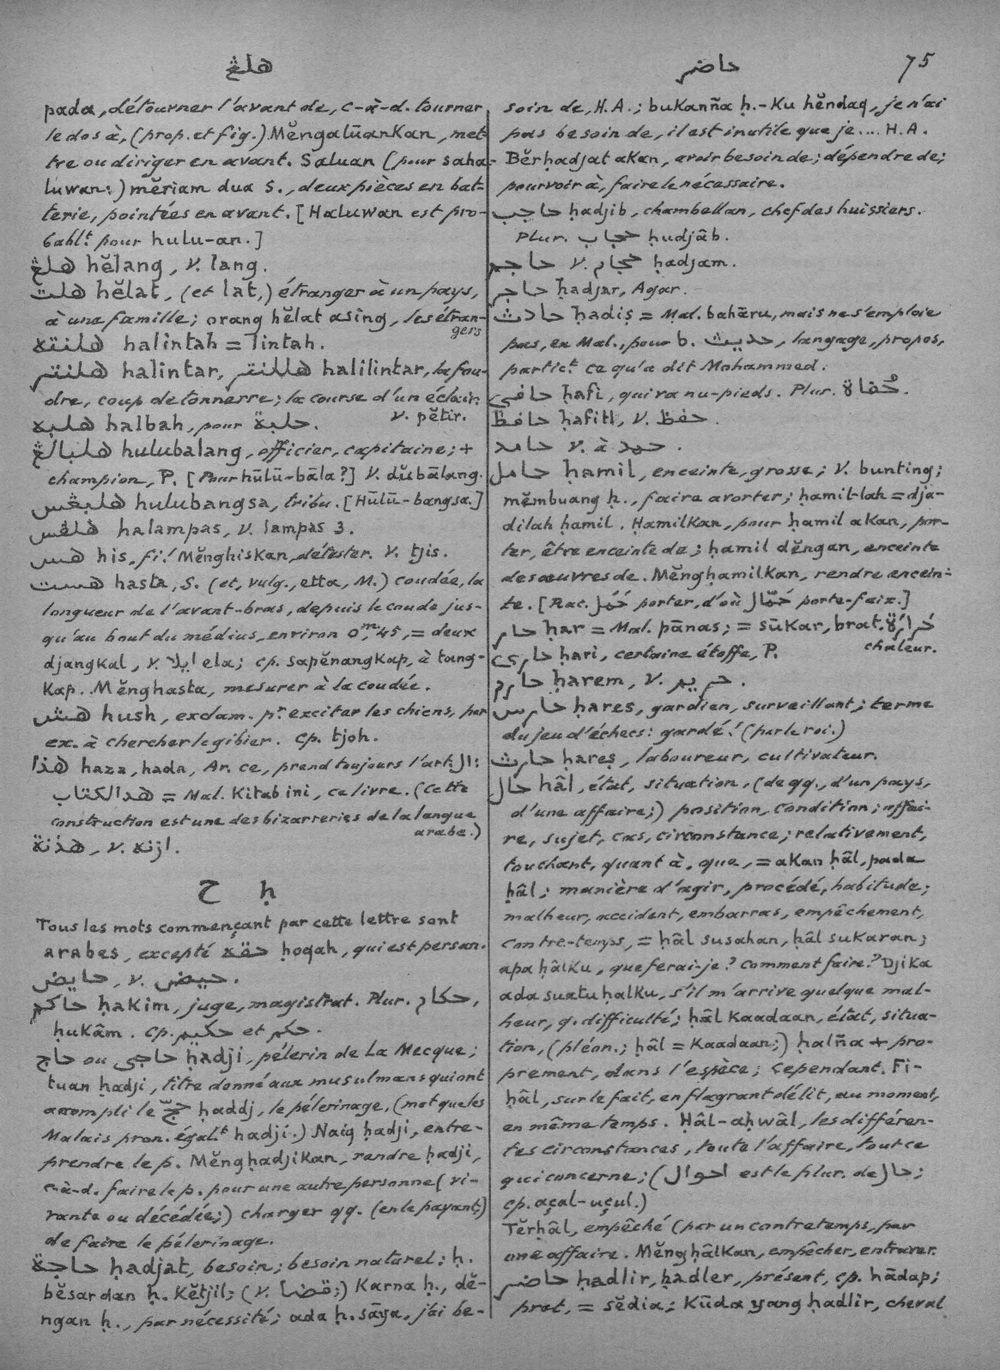 هلڠ
حاضر
75
pada, détourner l'avant de, c-à-d. tourner
le dos à, (prop. et fig.) Mĕngalūankan, met-
tre ou diriger en avant. Saluan (pour saha-
luwan:) mĕriam dua s., deux pièces en bat-
terie, pointées en avant. [Haluwan est pro-
babl.t pour hulu-an.]
هلڠ hĕlang, v. lang.
هلت hĕlat, (et lat,) étranger à un pays,
à une famille; orang hĕlat asing, les étran-
gers
هلنته halintah = lintah.
هلنتر halintar, هللنتر halilintar, la fou-
dre, coup de tonnerre; la course d'un éclair.
v. pĕtir.
هلبه halbah, pour حلبة.
هلبالڠ hulubalang, officier, capitaine; +
champion, P. [Pour hūlū-bāla?] V. dŭbālang.
هلبڠس hulubangsa, tribu. [Hūlū-bangsa.]
هلمڤس halampas, v. lampas 3.
هس his, fi! Mĕnghiskan, détester. v. tjis.
هست hasta, S. (et, vulg., etta, M.) coudée, la
longueur de l'avant-bras, depuis le coude jus-
qu'au bout du médius, environ 0m,45, = deux
djangkal, v. ايلا ela; cp. sapĕnangkap, à tang-
kap. Mĕnghasta, mesurer à la coudée.
هش hush, exclam. pr exciter les chiens, par
ex. à chercher le gibier. cp. tjoh.
هذا haza, hada, Ar. ce, prend toujours l'art. ال:
هدالكتاب = Mal. Kitab ini, ce livre. (Cette
construction est une des bizarreries de la langue
arabe.)
هذنة, v. ازنه.
ح ḥ
Tous les mots commençant par cette lettre sont
arabes, excepté حقه ḥoqah, qui est persan.
حايض, v. حيض.
حاكم ḥakim, juge, magistrat. Plur. حكام,
ḥukâm. cp. حكيم et حكم.
حاج ou حاجى ḥadji, pélerin de La Mecque;
tuan ḥadji, titre donné aux musulmans qui ont
accompli le حجّ ḥaddj, le pélerinage, (mot que les
Malais pron. égal.t hadji.) Naig ḥadji, entre-
prendre le p. Mĕngḥadjikan, rendre ḥadji,
c-à-d. faire le p. pour une autre personne (vi-
vante ou décédée;) charger qq. (en le payant)
de faire le pélerinage.
حاجة ḥadjat, besoin; besoin naturel: ḥ.
bĕsar dan ḥ. Kĕtjil; (v. قضا;) Karna ḥ., dĕ-
ngan ḥ., par nécessité; ada ḥ. sāya, j'ai be-
soin de, H.A.; bukanña ḥ.-Ku hĕndaq, je n'ai
pas besoin de, il est inutile que je .... H.A.
Bĕrḥadjat akan, avoir besoin de; dépendre de;
pourvoir à, faire le nécessaire.
حاجب ḥadjib, chambellan, chef des huissiers.
Plur. حجاب ḥudjâb.
حاجم v. حجام ḥadjam.
حاجر ḥadjar, Agar.
حادث ḥadiṣ = Mal. bahāru, mais ne s'emploie
pas, en Mal., pour b. حديث, langage, propos,
partic.t ce qu'a dit Mohammed.
حافى ḥafi, qui va nu-pieds. Plur. حُفاة.
حافظ ḥafitl, v. حفظ.
حامد v. à حمد.
حامل ḥamil, enceinte, grosse; v. bunting;
mĕmbuang ḥ., faire avorter; ḥamil-lah = dja-
dilah ḥamil. Ḥamilkan, pour ḥamil akan, por-
ter, être enceinte de; ḥamil dĕngan, enceinte
des œuvres de. Mĕngḥamilkan, rendre encein-
te. [Rac. حَمَل porter, d'où حَمّال porte-faix.]
حار ḥar = Mal. pānas; = sūkar, brat. حَرارَة
chaleur.
حارى ḥari, certaine étoffe, P.
حارم ḥarem, v. حريم.
حارس ḥares, gardien, surveillant; terme
du jeu d'échecs: garde! (pur le roi.)
حارث ḥareṣ, laboureur, cultivateur.
حال ḥâl, état, situation, (de qq., d'un pays,
d'une affaire;) position, condition; affai-
re, sujet, cas, circonstance; relativement,
touchant, quant à, que, = akan ḥâl, pada
ḥâl; manière d'agir, procédé, habitude;
malheur, accident, embarras, empêchement,
contre-temps, = ḥâl susahan, ḥâl sukaran;
apa ḥâlku, que ferai-je? comment faire? Djika
ada suatu ḥalku, s'il m'arrive quelque mal-
heur, q. difficulté; ḥâl kaadaan, état, situa-
tion, (pléon.; ḥâl = kaadaan;) ḥalña + pro-
prement, dans l'espèce; cependant. Fi-
ḥâl, sur le fait, en flagrant délit, au moment,
en même temps. Ḥâl-aḥwâl, les différen-
tes circonstances, toute l'affaire, tout ce
qui concerne; (احوال est le plur. de حال;
cp. açal-uçul.)
Tĕrḥâl, empêché (par un contretemps, par
une affaire. Mĕngḥâlkan, empêcher, entraver.
حاضر ḥadlir, ḥadler, présent, cp. hādap;
prêt, = sĕdia; Kūda yang ḥadlir, cheval